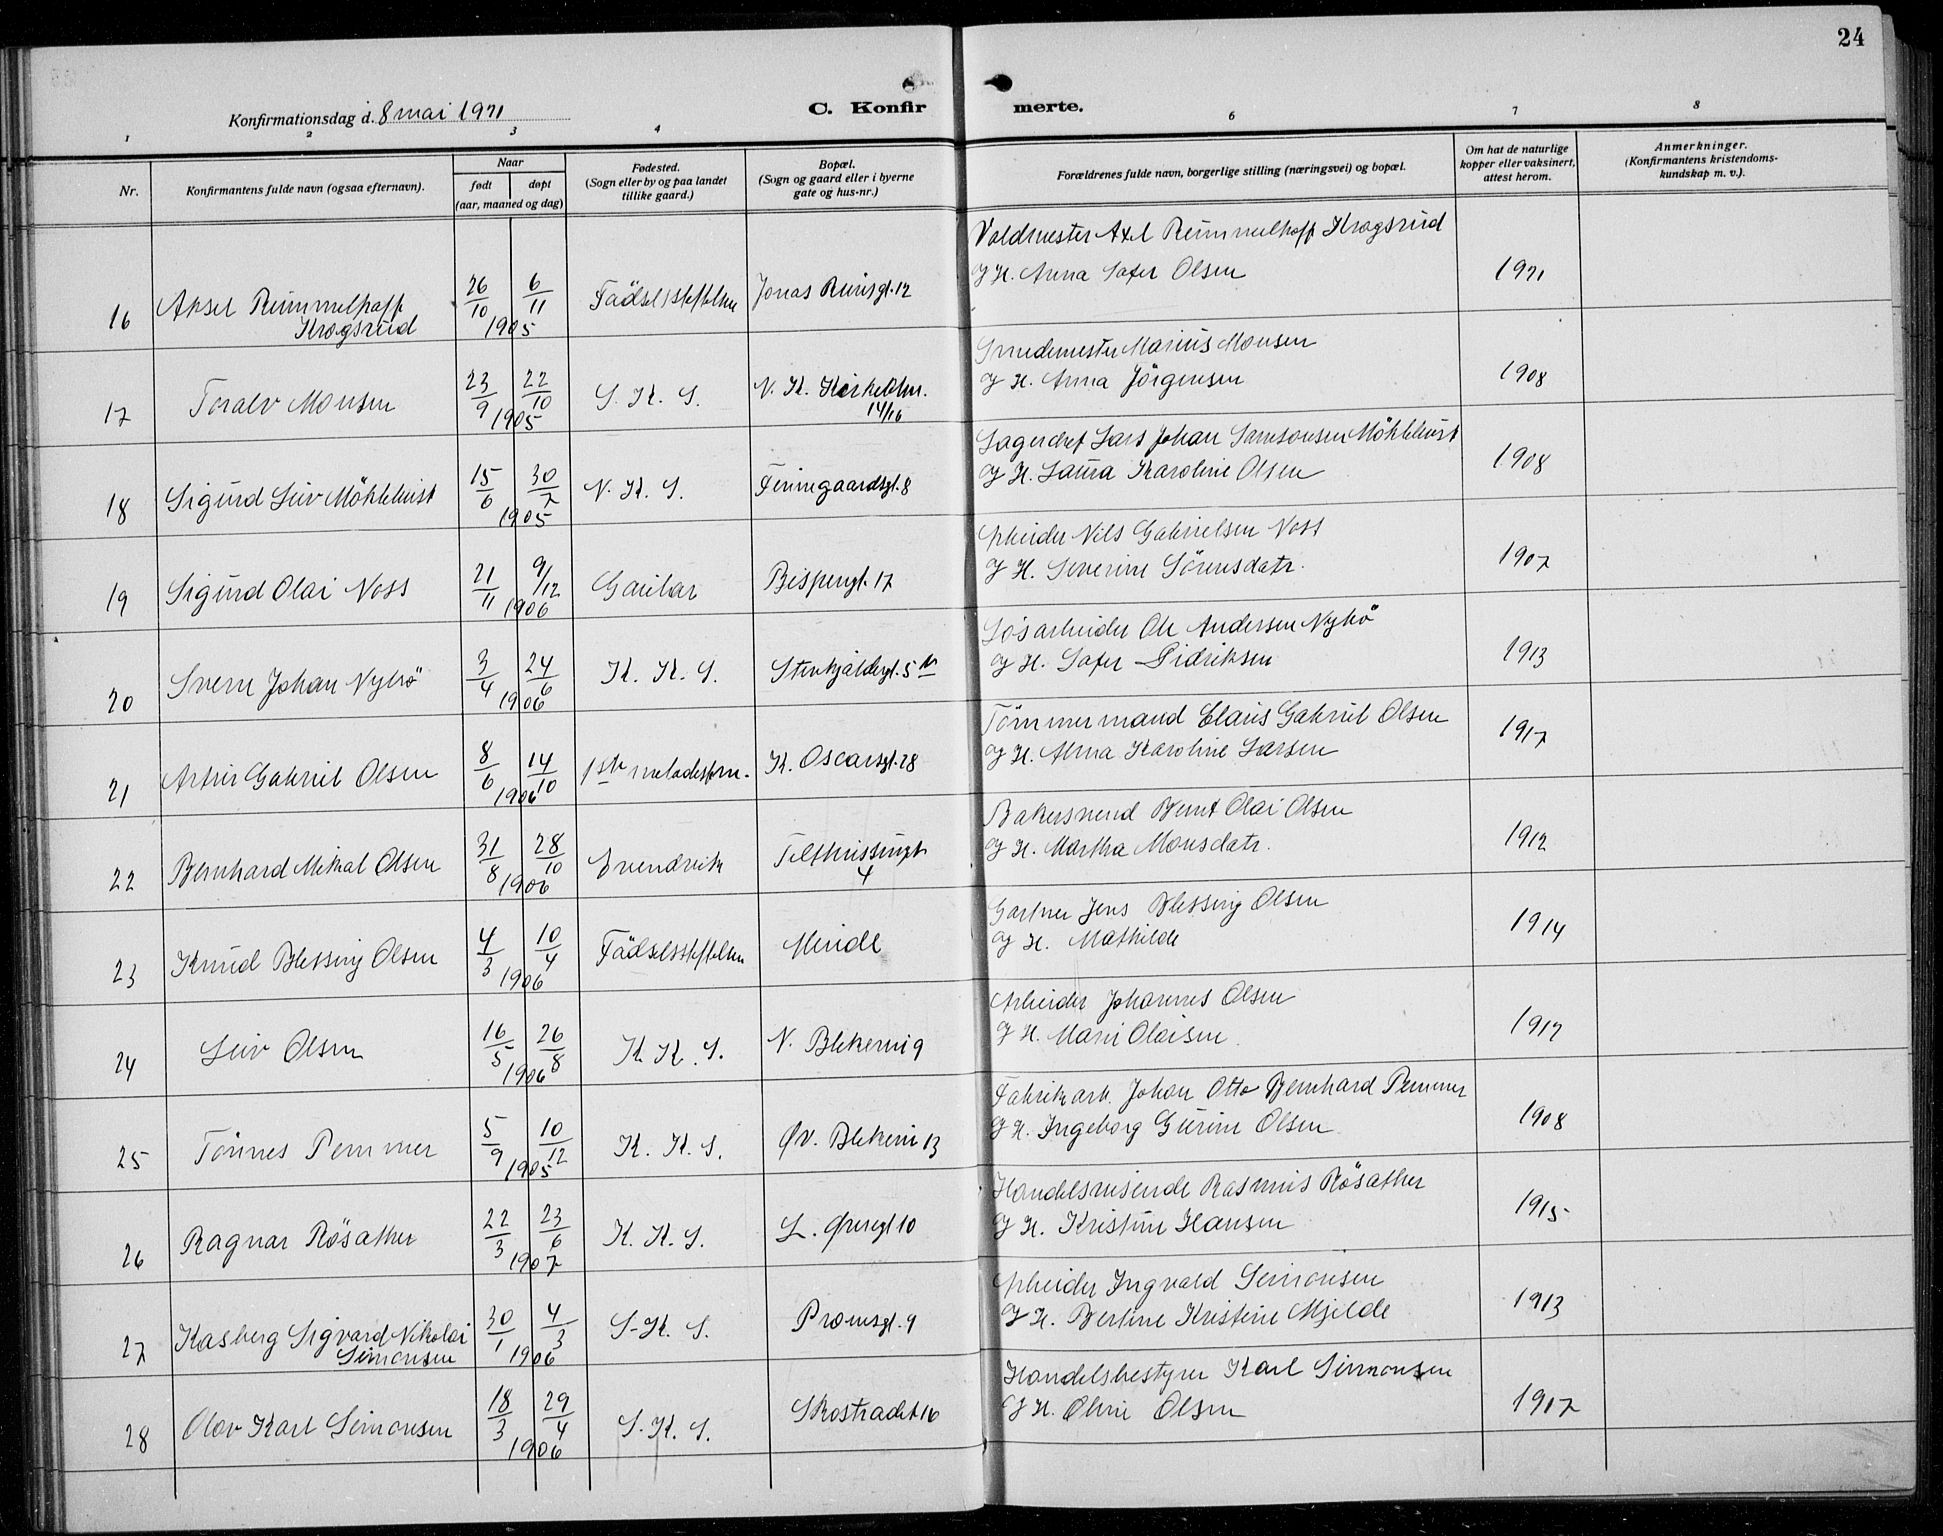 24
Konfirmationsdag d. 8 mai 1921
C. Konfirmerte.
1 2 3 4 6 7 8
Nr.
Konfirmantens fulde navn (ogsaa efternavn).
Naar
født
døpt
(aar, maaned og dag)
Fødested.
(Sogn eller by og paa landet
tillike gaard.)
Bopæl.
(Sogn og gaard eller i byerne
gate og hus-nr.)
Forældrenes fulde navn, borgerlige stilling (næringsvei) og bopæl.
Om hat de naturlige
kopper eller vaksinert,
attest herom.
Anmerkninger.
(Konfirmantens kristendoms-
kundskap m. v.).
Voldmester Axel Rümmelhoff Krogsrud
og H. Anna Sofer Olsen 1921
16 Aksel Rümmelhoff
Krogsrud 26/10 6/11 1905 Fødselsstiftelsen Jonas Reinsgt. 12
Smedmester Marius Monsen
og H. Anna Jörgensen 1908
17 Toralv Monsen 23/9 22/10 1905 S. K. S. N. K. Kirkealm.
14/16
Lagerchef Lars Johan Samsonsen Möhlekvist
og H. Laura Karoline Olsen 1908
18 Sigurd Leiv Möhlekvist 15/6 30/7 1905 N. K. S. Finnegaardsgt. 8
Arbeider Nils Gabrielsen Noss
og H. Severine Sörensdatr. 1907
19 Sigurd Olai Noss 21/11 9/12 1906 Gaular Bispengt. 17
Løsarbeider Ole Andersen Nybö
og H. Sofer Didriksen 1913
20 Sverre Johan Nybö 3/4 24/6 1906 K. K. S. Stenkjældergt. 5 b
Tömmermand Claus Gabriel Olsen
og H. Anna Karoline Larsen 1917
21 Artur Gabriel Olsen 8/6 14/10 1906 K. Oscarsgt. 28
Bakersvend Bernt Olai Olsen
og H. Martha Monsdatr. 1912
22 Bernhard Mikal Olsen 31/8 28/10 1906 Evendvik
4
Gartner Jens Blessing Olsen
og H. Mathilde 1914
23 Knud Blessing Olsen 4/3 10/4 1906 Fødselsstiftelsen Minde
Arbeider Johannes Olsen
og H. Marie Olaisen 1917
24 Leiv Olsen 16/5 26/8 1906 K. K. S. N. Blekevei 9
Fabrikarb. Johan Otto Bernhard Pemmer
og H. Ingeborg Gurine Olsen 1908
25 Tönnes Pemmer 5/9 10/12 1905 K. K. S. Øv. Blekevei 13
Handelsreisende Rasmus Rösæther
og H. Kristine Hansen 1915
26 Ragnar Rösæther 22/3 23/6 1907 K. K. S. L. Øvregt 10
Arbeider Ingvald Simonsen
og H. Bertine Kristine Mjelde 1913
27 Kasberg Sigvard Nikolai
Simonsen 30/1 4/3 1906 S. K. S. Promsgt. 9
Handelsbestyrer Karl Simonsen
og H. Oline Olsen 1917
28 Olav Karl Simonsen 18/3 29/4 1906 S. K. S. Skostrædet 16